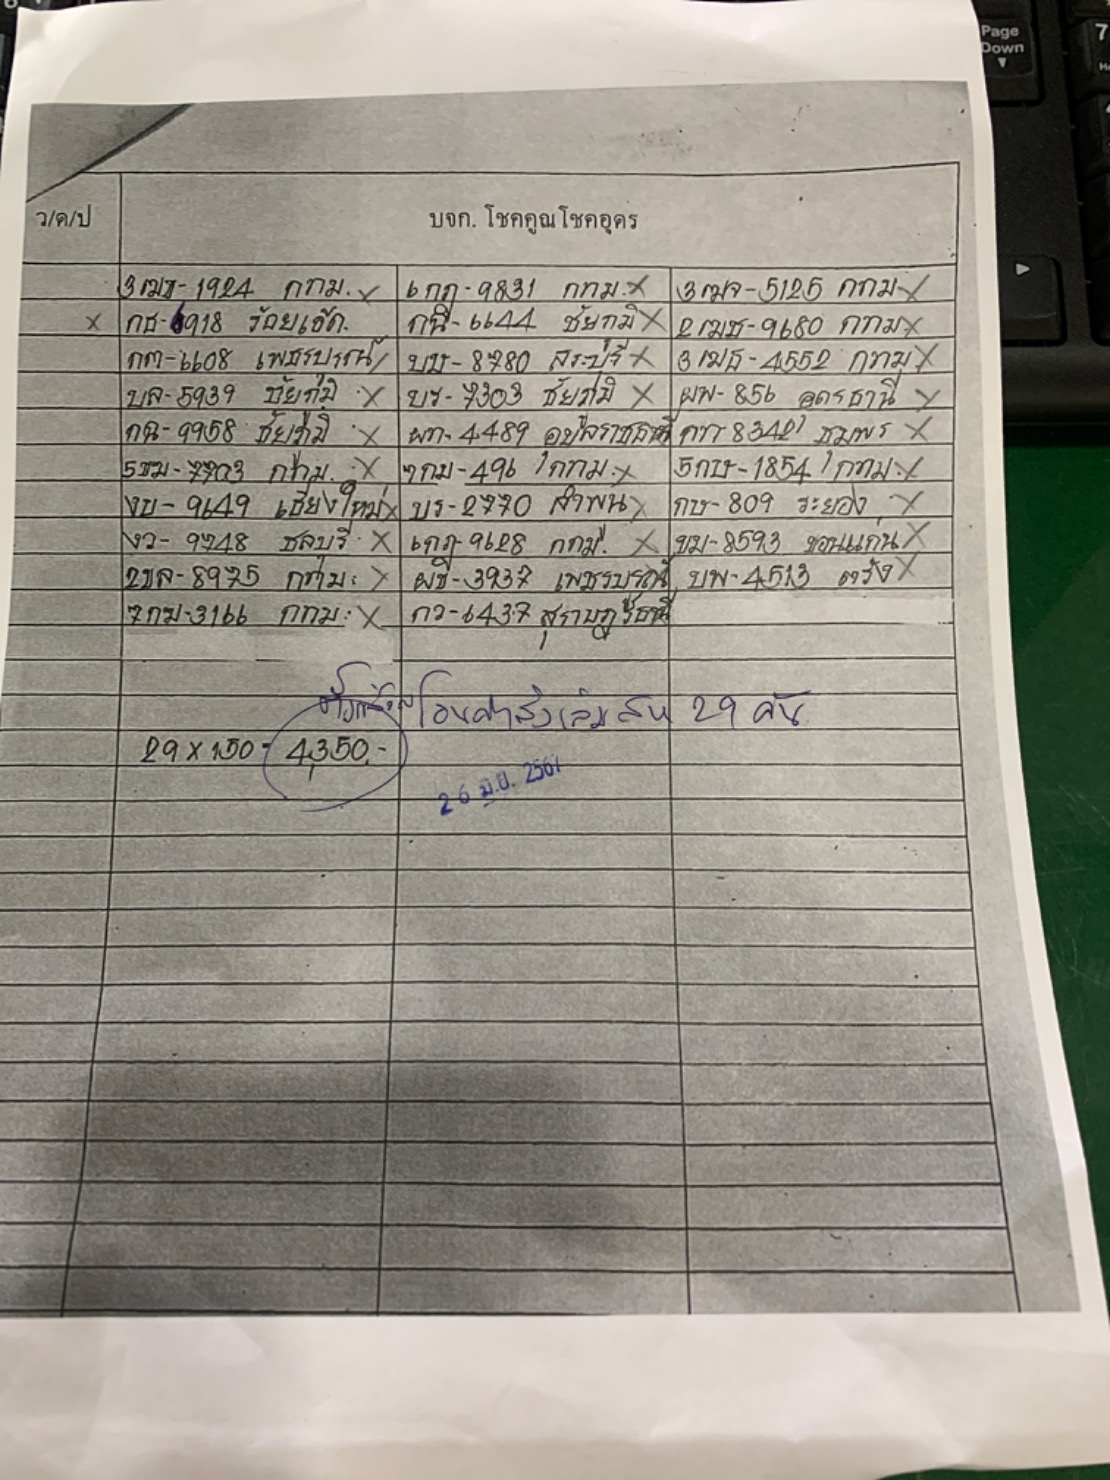 Page
Down
7
ว/ค/ป บจก. โชคคูณโชคอุดร
3เมช-1924 กทม. x 6กฎ-9831 กทม. x 3เมจ-5125 กทม x
x กธ-6918 ร้อยเอ็ด. กนี-6644 ชัยภูมิ x 2เมช-9680 กทม x
กต-6608 เพชรบูรณ์ บบ-8780 สระบุรี x 3เมธ-4552 กทม x
บล-5939 ชัยภูมิ x บร-7303 ชัยภูมิ x ผพ-856 อุดรธานี x
กฉ-9958 ชัยภูมิ x ผก-4489 อุบลราชธานี กท 8342 ชุมพร x
5ขม-7703 กทม. x 7กม-496 กทม. x 5กษ-1854 กทม. x
งบ-9649 เชียงใหม่ x บร-2770 ลำพูน x กษ-809 ระยอง x
งว-9748 ชลบุรี x 6กฎ-9628 กทม. x ขม-8593 ขอนแก่น x
2ขล-8975 กทม. x ผชี-3937 เพชรบูรณ์ บพ-4513 ตรัง x
7กฆ-3166 กทม. x กว-6437 สุราษฎร์ธานี
โอนค่าส่งเล่ม 29 คัน
29 x 150 = 4,350.-
26 มิ.ย. 2567